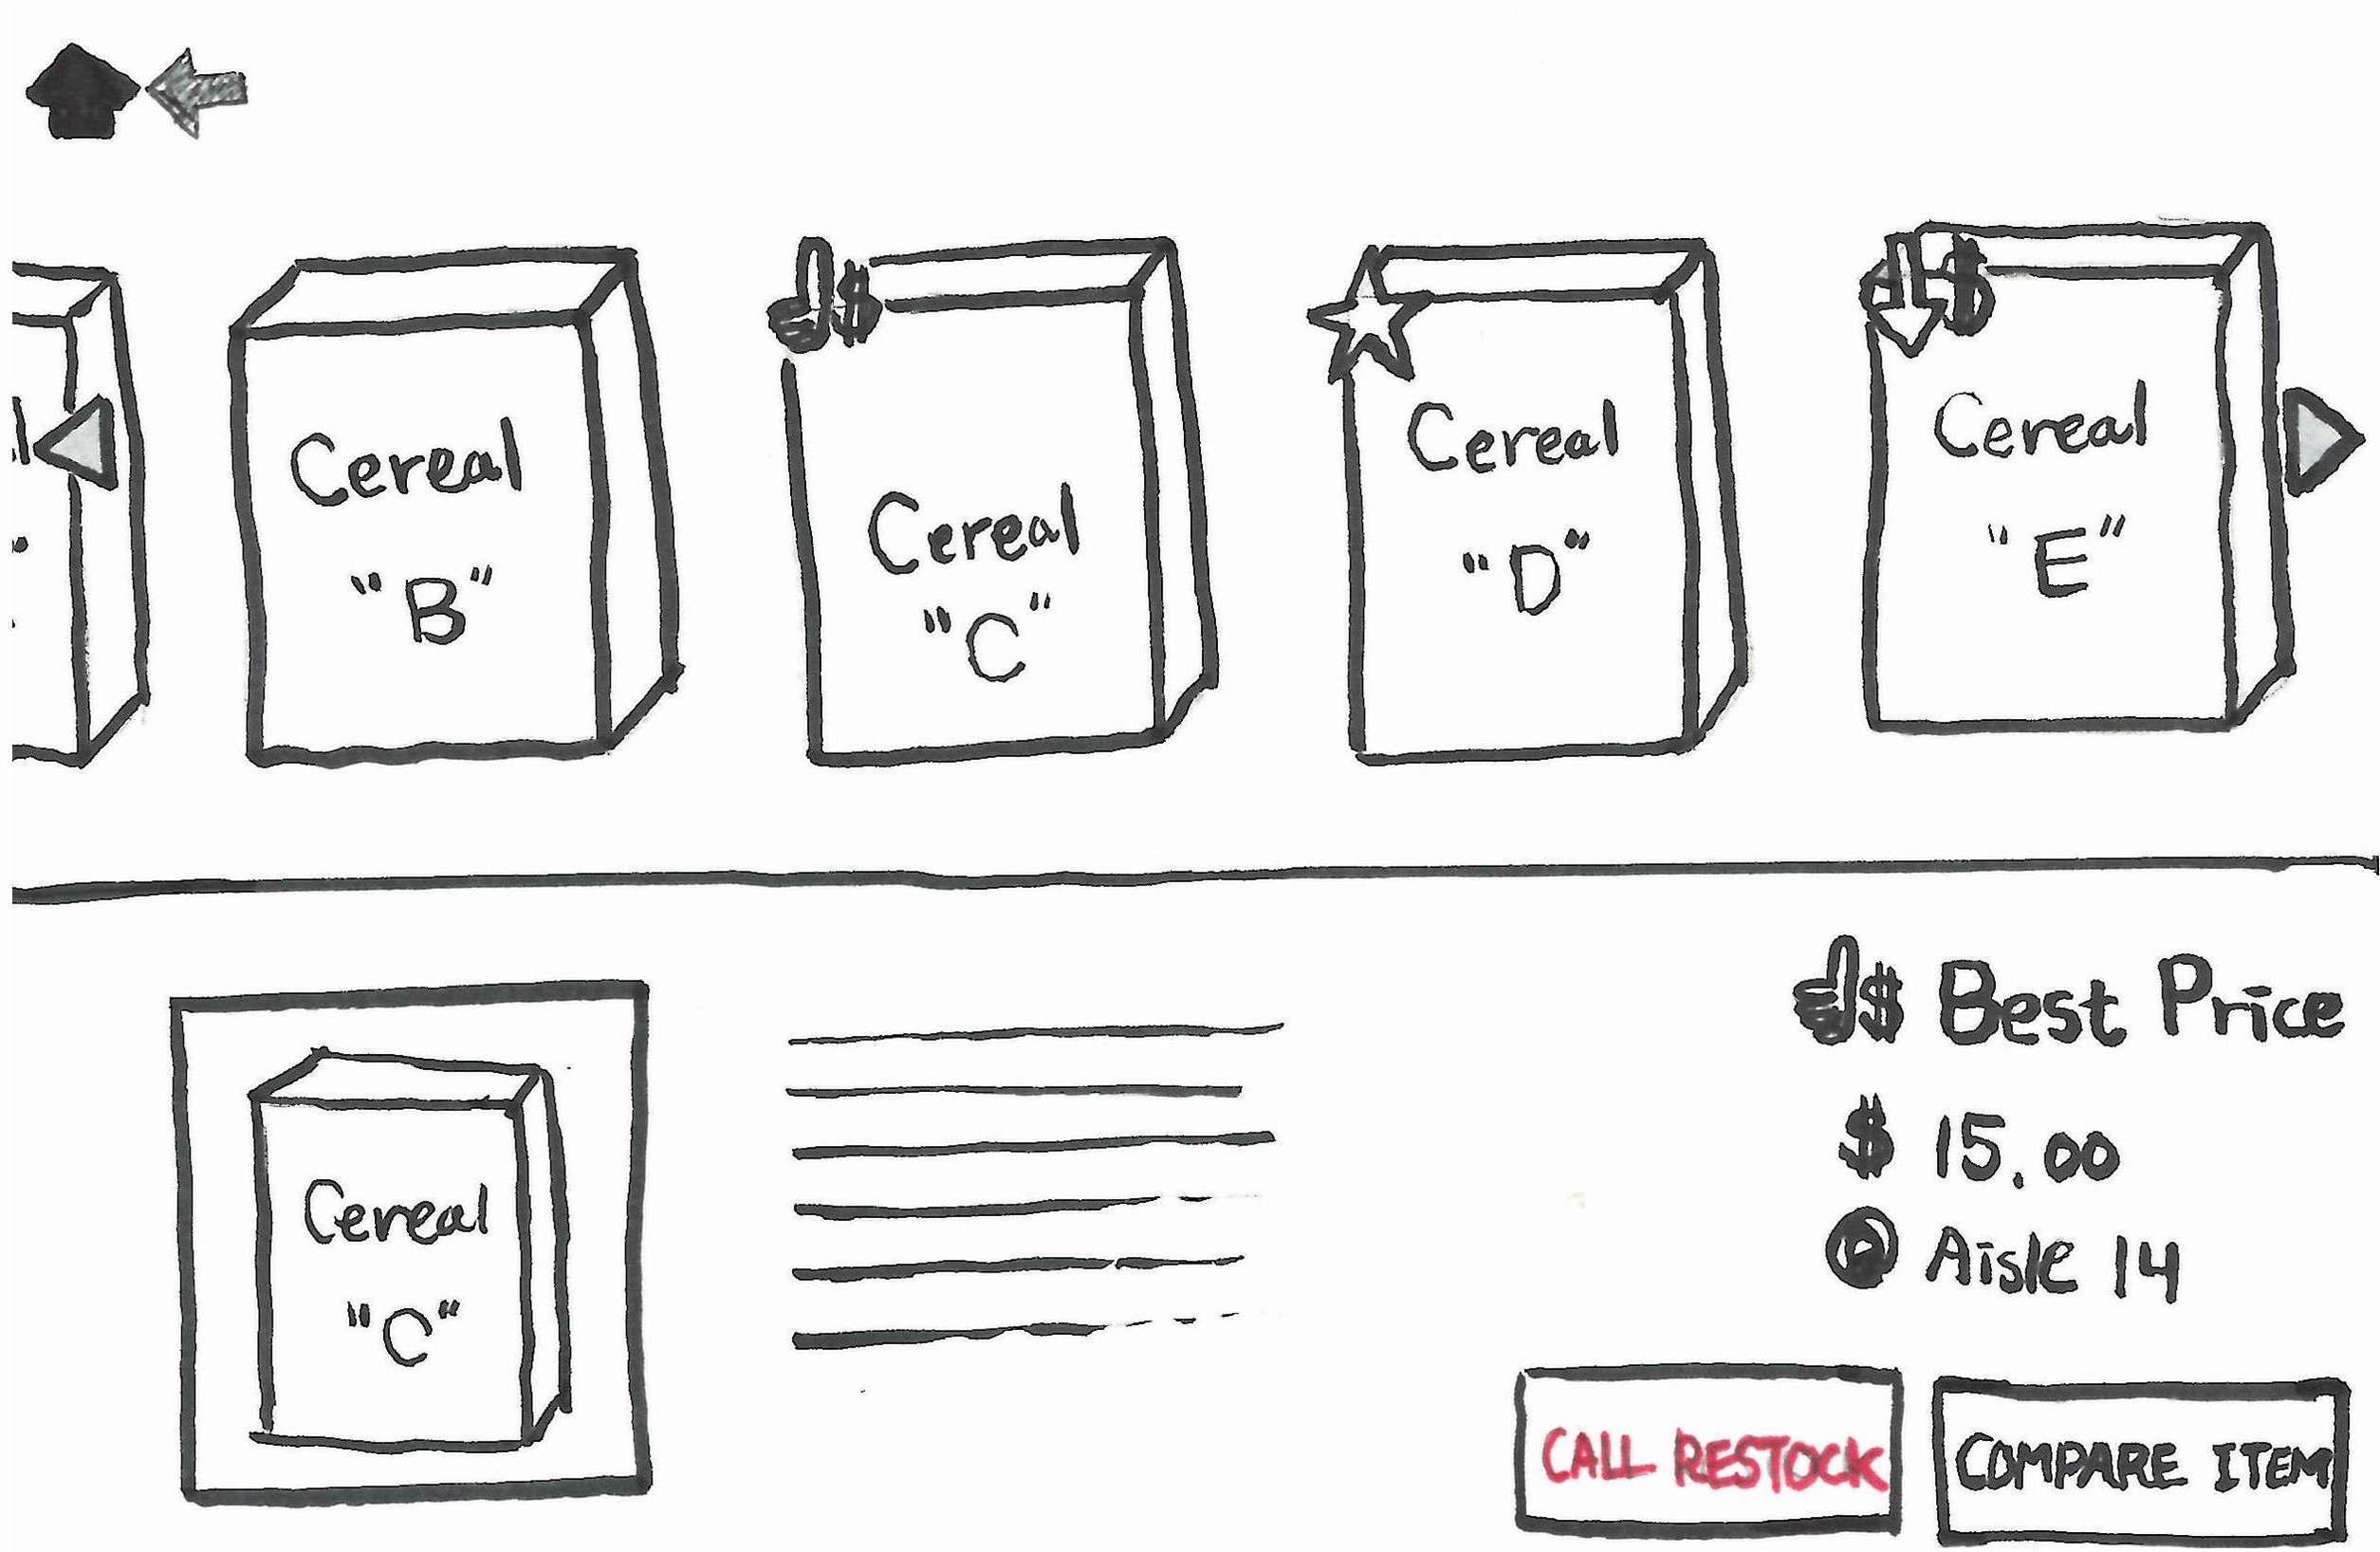 Cereal
"B"
Cereal
"C"
Cereal
"D"
Cereal
"E"
Cereal
"C"
$ Best Price
$ 15.00
Aisle 14
CALL RESTOCK
COMPARE ITEM